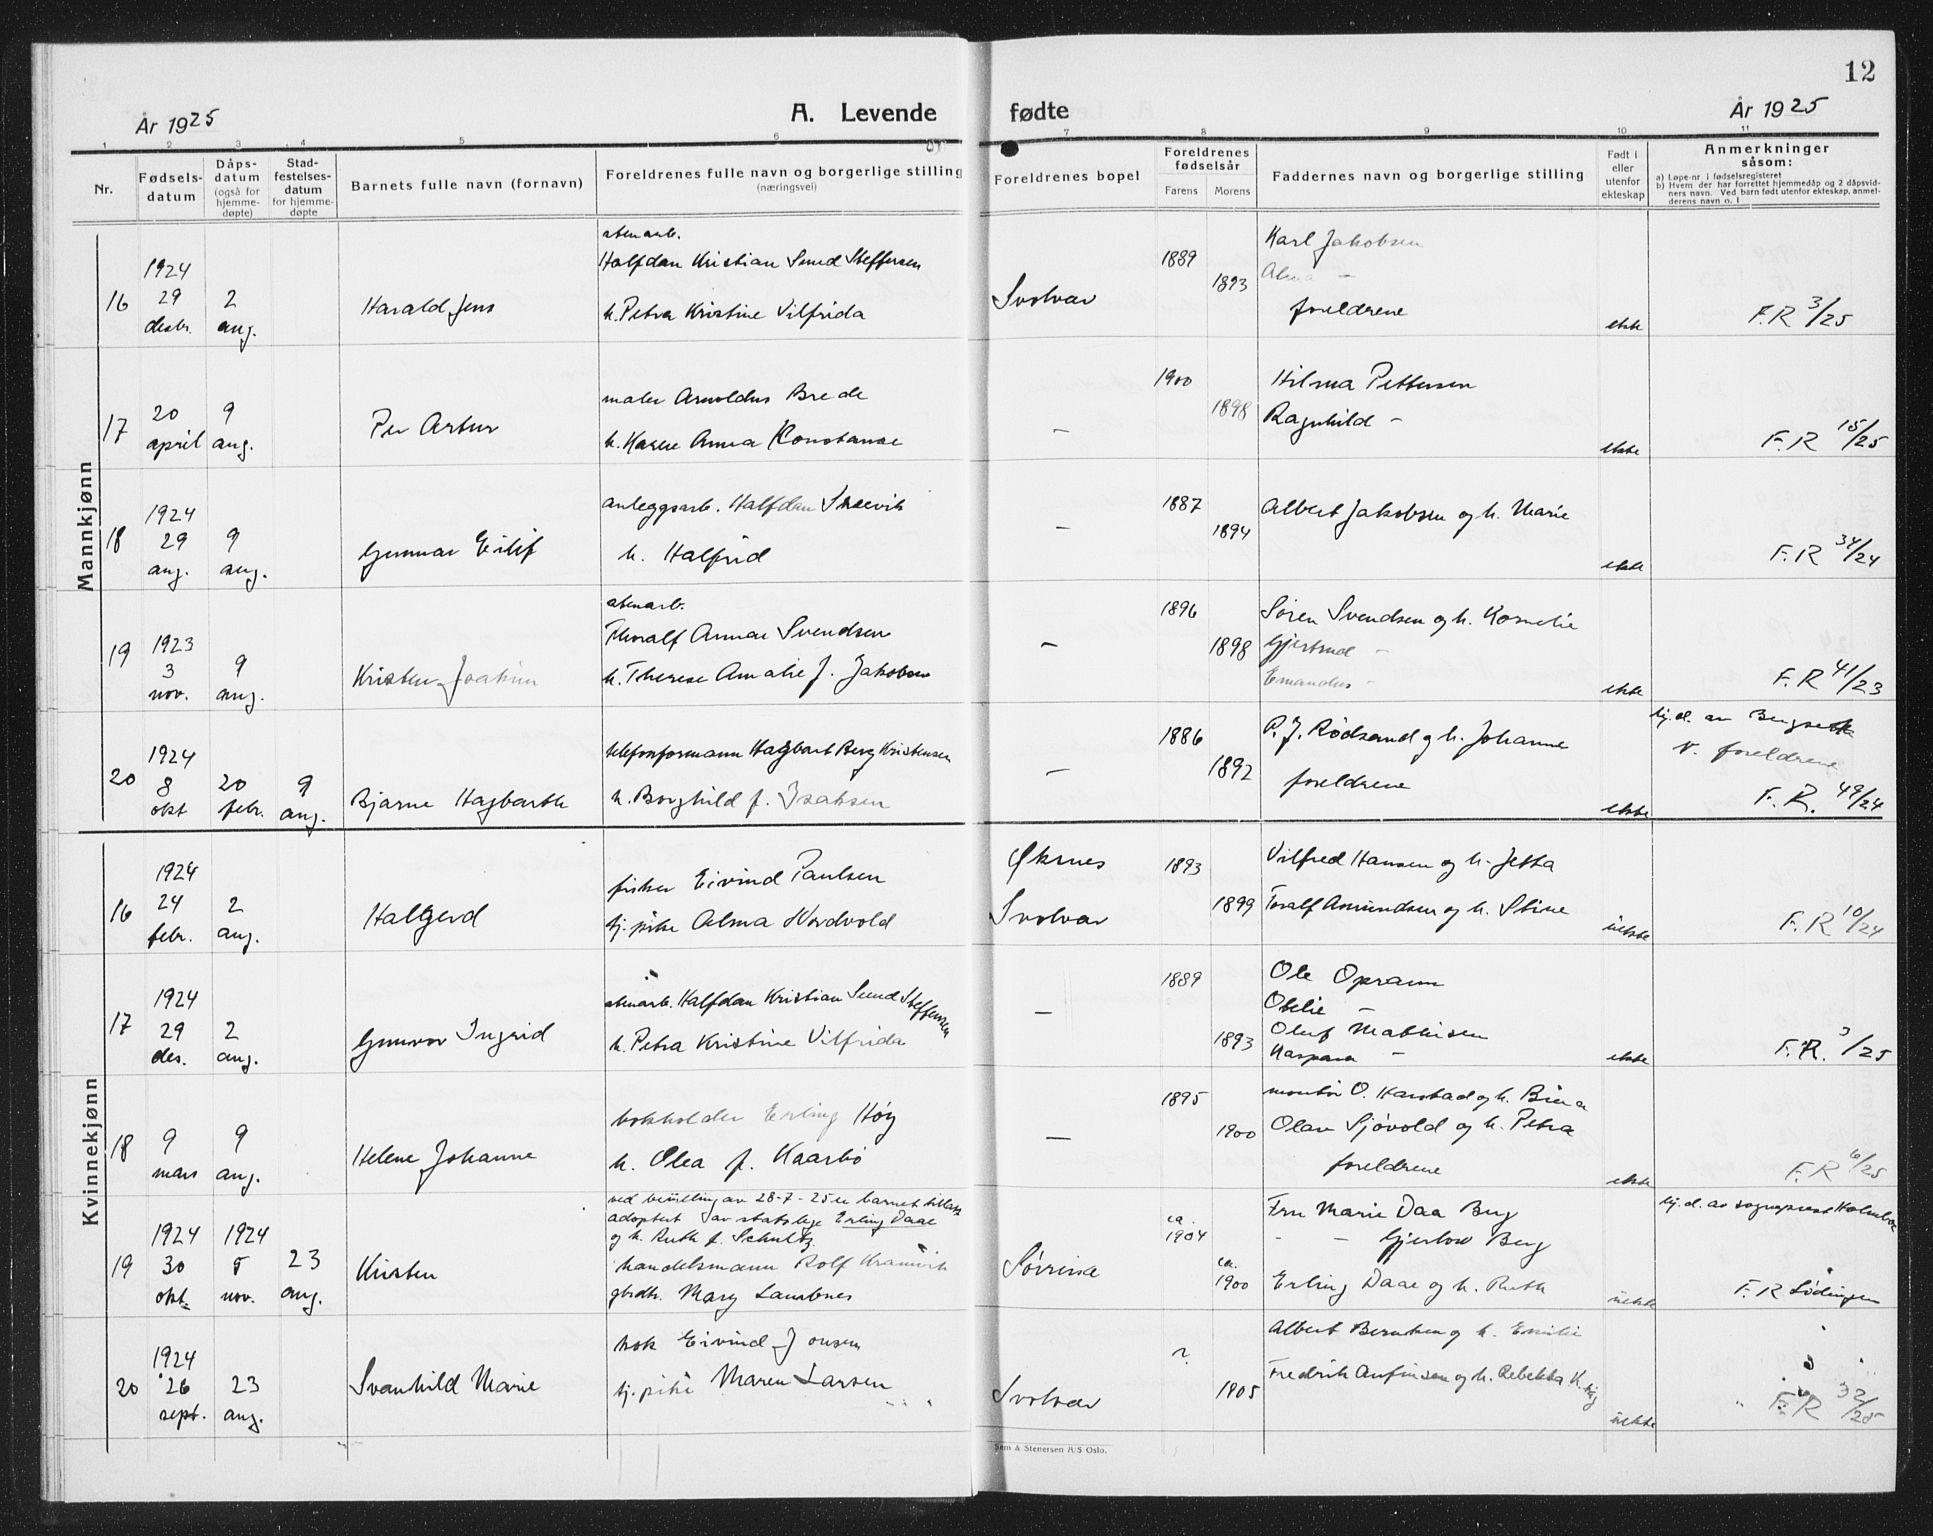 12
År 1925
A. Levende
fødte
År 1925
1 2 3 4 5 6 7 8 9 10 11
Nr.
Fødsels-
datum
Dåps-
datum
(også for
hjemme-
døpte)
Stad-
festelses-
datum
for hjemme-
døpte
Barnets fulle navn (fornavn)
Foreldrenes fulle navn og borgerlige stilling
(næringsvei)
Foreldrenes bopel
Foreldrenes
fødselsår
Farens
Morens
Faddernes navn og borgerlige stilling
Født i
eller
utenfor
ekteskap
Anmerkninger
såsom:
a) Løpe-nr i fødselsregisteret
b) Hvem der har forrettet hjemmedåp og 2 dåpsvid-
ners navn. Ved barn født utenfor ekteskap, anmel-
derens navn o. l
Mannkjønn
16
1924
29
desbr.
2
aug.
Harald Jens
stenarb.
Halfdan Kristian Sund Steffensen
h. Petra Kristine Vilfrida
Svolvær
1889
1893
Karl Jakobsen
Alma —
foreldrene
ekte
F.R 3/25
17
20
april
9
aug.
Per Artur
maler Arnoldus Brede
h. Karen Anna Konstanse
—
1900
1898
Hilma Pettersen
Ragnhild —
ekte
F.R 15/25
18
1924
29
aug.
9
aug.
Gunnar Eilif
anleggsarb. Halfdan
h. Halfrid
—
1887
1894
Albert Jakobsen og h. Marie
ekte
F.R 34/24
19
1923
3
nov.
9
aug.
Kristen Joakim
stenarb.
Thoralf Annar Svendsen
h. Therese Amalie f. Jakobsen
—
1896
1898
Søren Svendsen og h. Kornelie
Gjertrud —
Emandus —
ekte
F.R 41/23
20
1924
8
okt
20
febr.
9
aug.
Bjarne Hagbarth
telefonformann Hagbart Berg Kristensen
h. Borghild f. Isaksen
—
1886
1892
P. J. Rødsand og h. Johanne
foreldrene
ekte
hj.d. av
v. foreldrene
F. R. 49/24
Kvinnekjønn
16
1924
24
febr.
2
aug.
Hallgerd
fisker Eivind Paulsen
tj. pike Alma Nordvold
Øksnes
Svolvær
1893
1899
Vilfred Hansen og h. Jetta
Toralf Amundsen og h. Stine
uekte
F.R 10/24
17
1924
29
des.
2
aug.
Gunvor Ingrid
stenarb. Halfdan Kristian Sund Steffensen
h. Petra Kristine Vilfrida
—
1889
1893
Ole Opsann
Otelie —
Oluf Mathisen
Kaspara —
ekte
F.R. 3/25
18
9
mars
9
aug.
Helene Johanne
bokholder Erling Høy
h. Olea f. Kaarbø
—
1895
1900
montør O. Harstad og h.
Olav Sjøvold og h. Petra
foreldrene
ekte
F.R 6/25
19
1924
30
okt.
1924
5
nov.
23
aug.
Kirsten
ved bevilling av 28-7-25 er barnet tillatt
adoptert av statslege Erling Daae
og h. Ruth f. Schultz.
handelsmann Rolf
gbrdtr. Mary
ca.
1904
ca.
1900
Fru Marie Daa Berg
- — Gjertow Berg
Erling Daae og h. Ruth
uekte
hj.d. av sogneprest Holmboe
F.R Lødingen
20
1924
26
sept.
23
aug.
Svanhild Marie
kok Eivind Jonsen
tj. pike Maren Larsen
Svolvær
?
1905
Albert Berntsen og h. Emilie
Fredrik Anfinsen og h. Rebekka
uekte
F.R 32/25
Sem & Stenersen A/S Oslo.